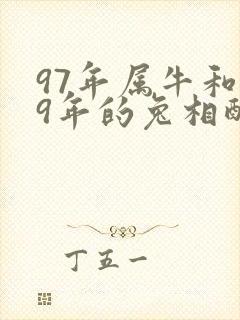 97年属牛和
9年的兔相配
丁五一